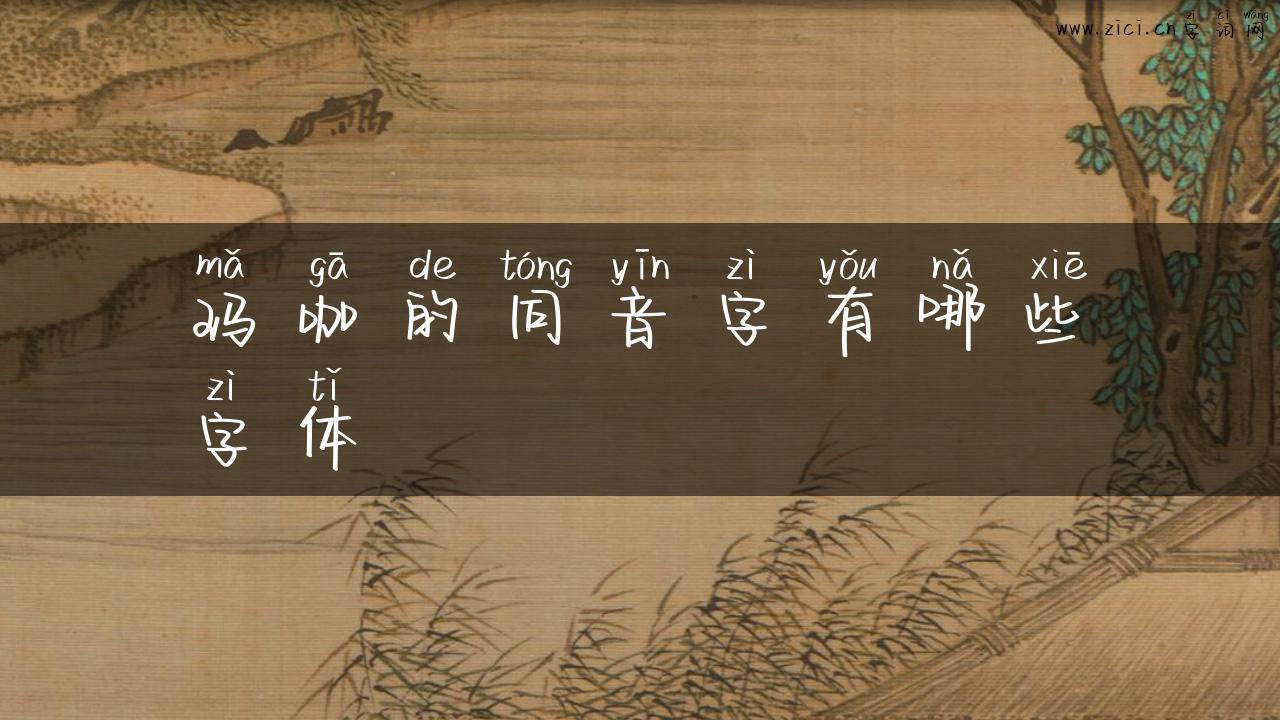 zì cí wǎng
www.zici.cn 字词网
mǎ gā de tóng yīn zì yǒu nǎ xiē
玛咖的同音字有哪些
zì tǐ
字体